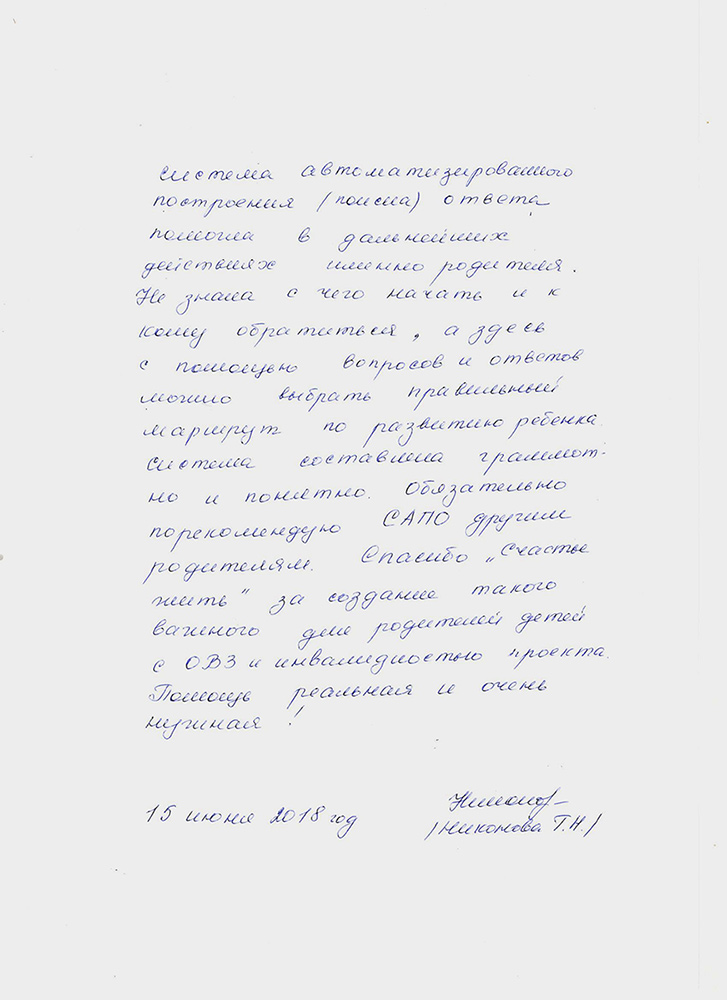 система автоматизированного
построения (поиска) ответа
помогла в дальнейших
действиях именно родителя.
Не знала с чего начать и к
кому обратиться, а здесь
с помощью вопросов и ответов
можно выбрать правильный
маршрут по развитию ребенка.
Система составлена граммот-
но и понятно. Обязательно
порекомендую САПО другим
родителям. Спасибо „Счастье
жить" за создание такого
важного для родителей детей
с ОВЗ и инвалидностью проекта.
Помощь реальная и очень
нужная!
15 июня 2018 год
/Никонова Т.Н./